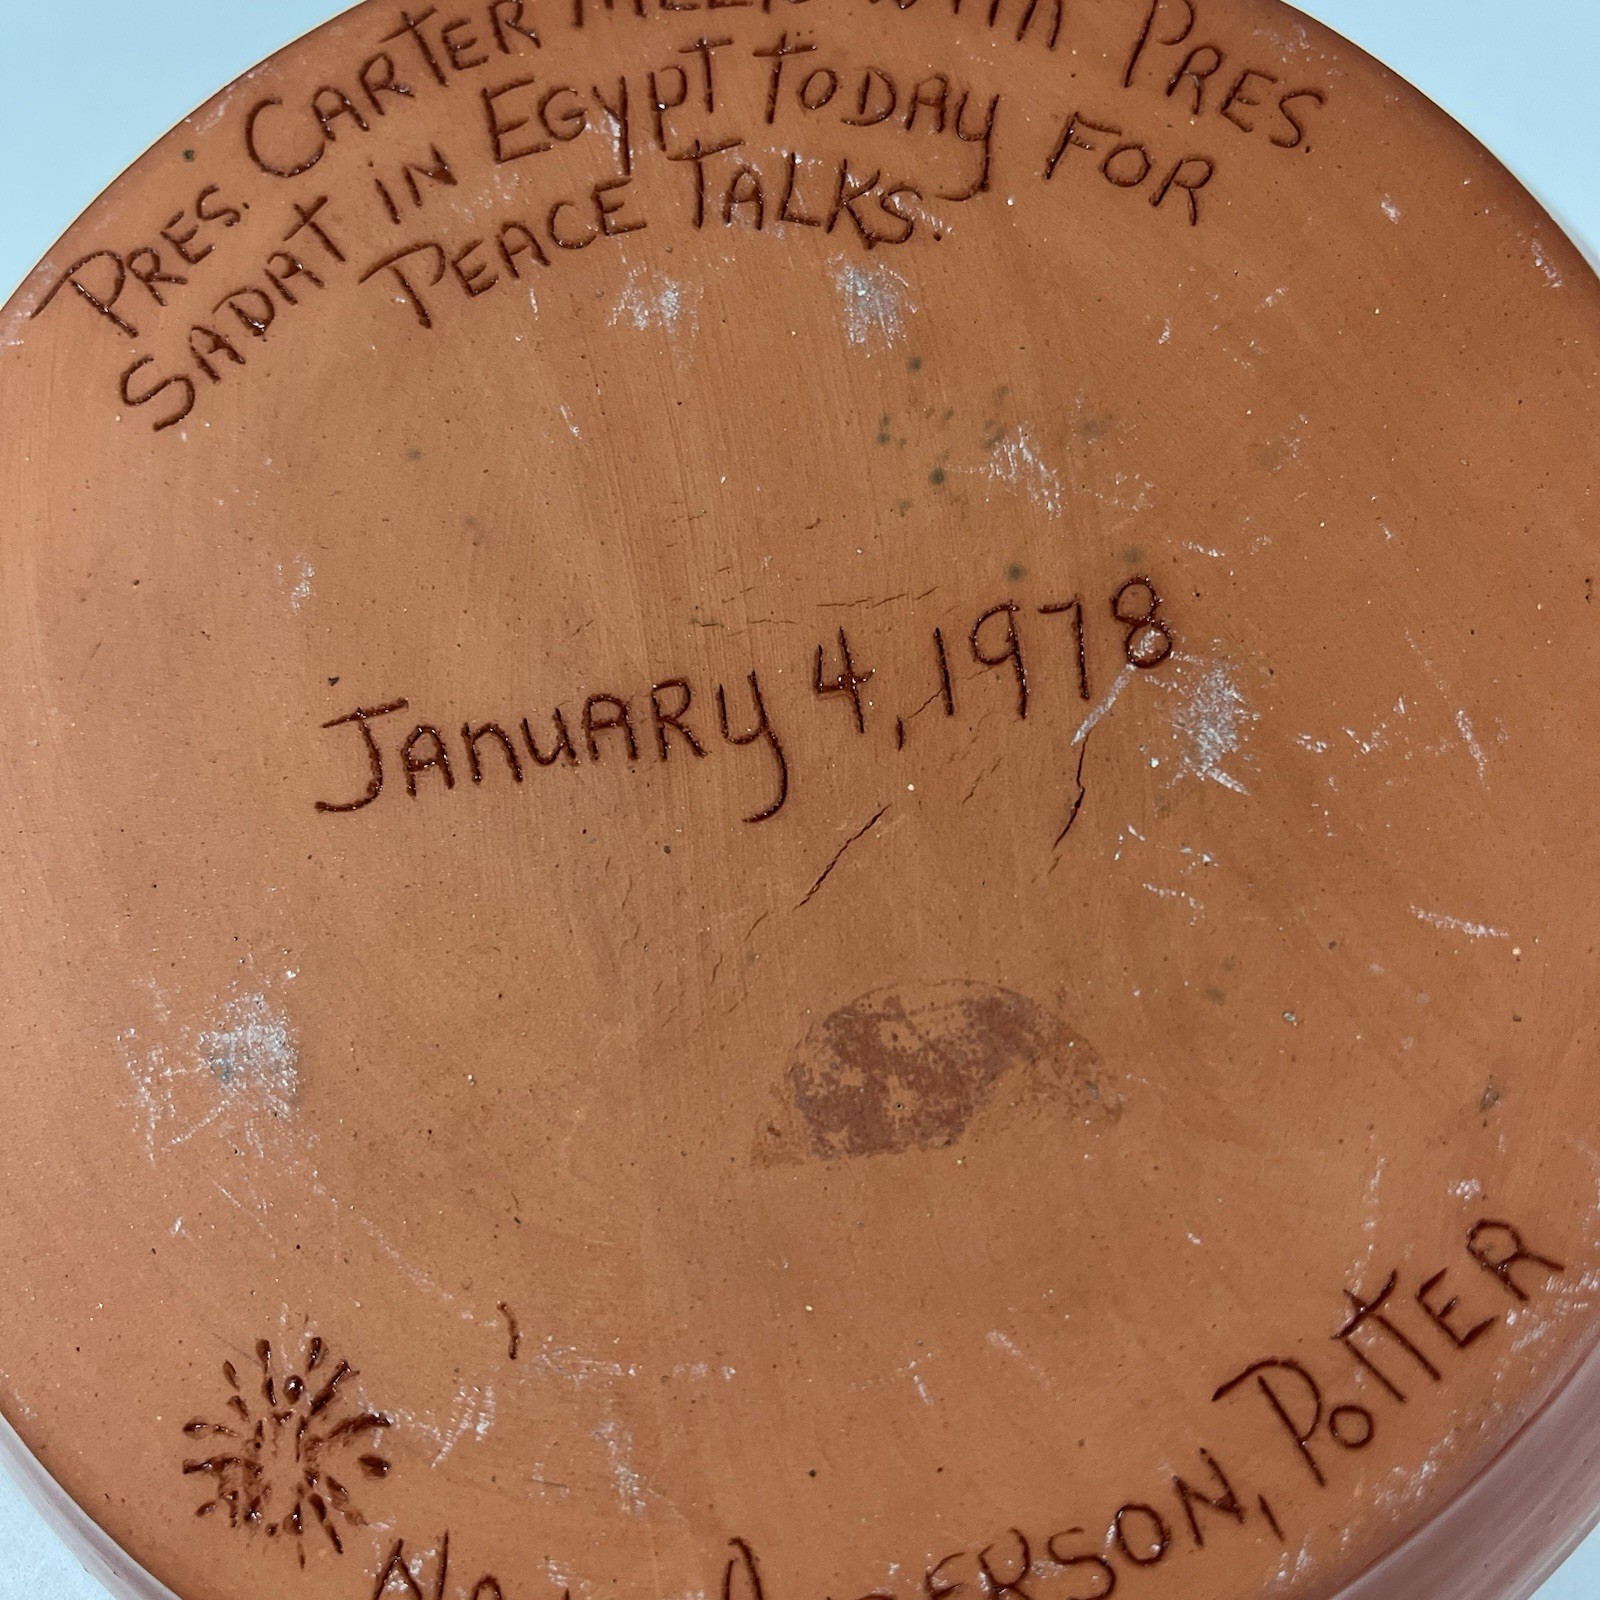 PRES. CARTER MEETS WITH PRES.
SADAT IN EGYPT TODAY FOR
PEACE TALKS.
JANUARY 4, 1978
ANDERSON, POTTER